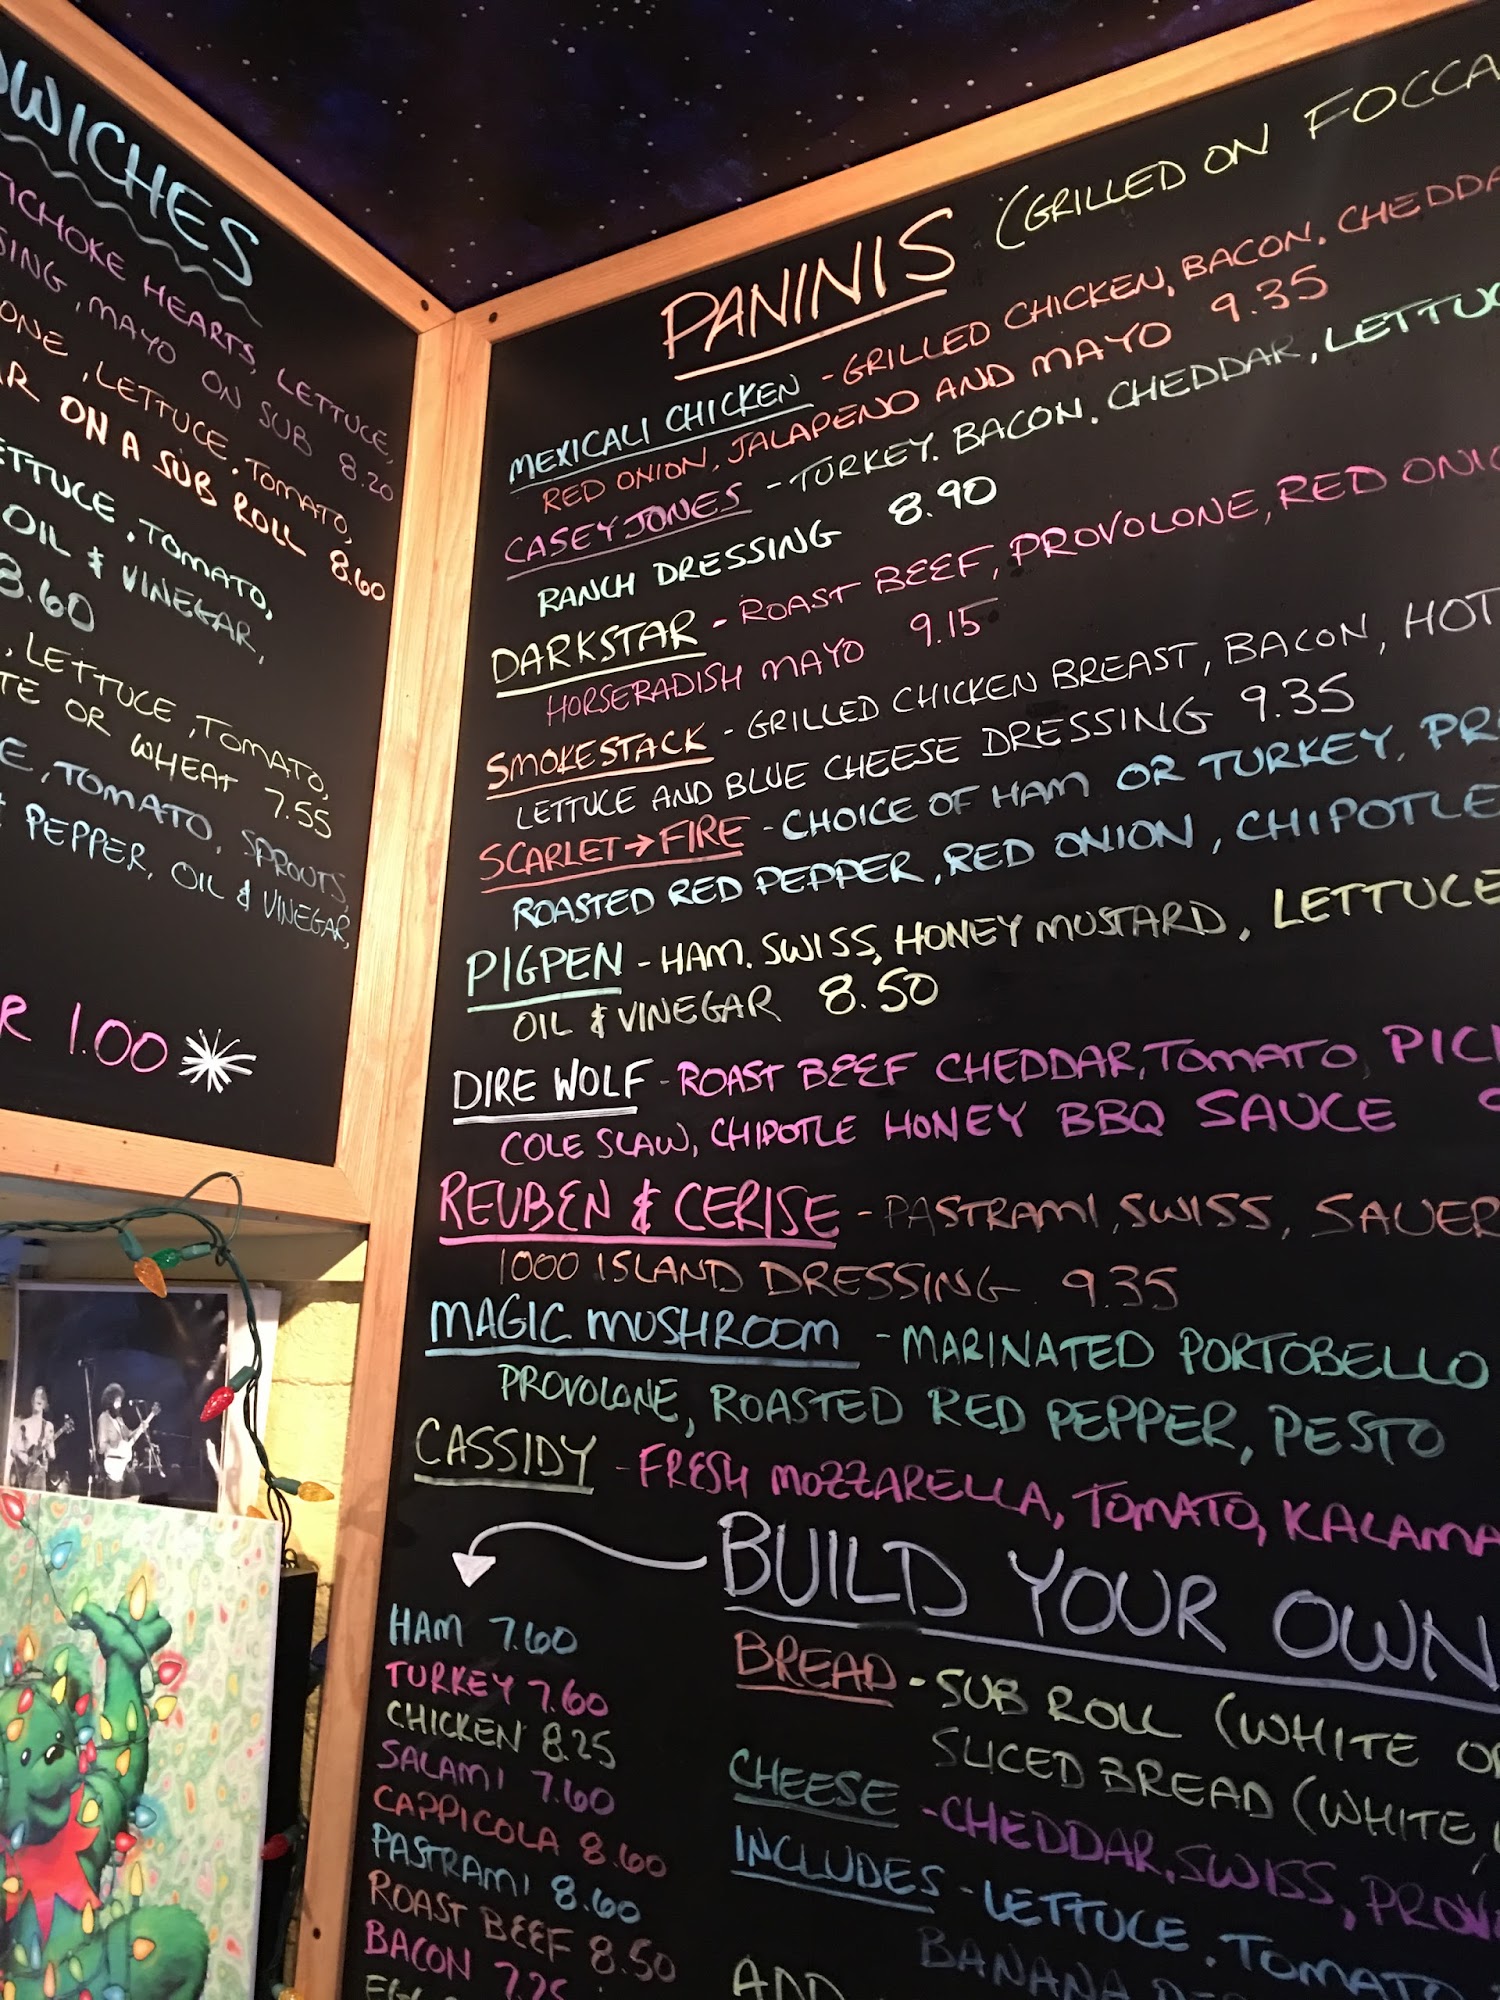 WICHES
TICHOKE HEARTS, LETTUCE,
SING, MAYO ON SUB 8.20
ONE, LETTUCE, TOMATO,
R ON A SUB ROLL 8.60
ETTUCE, TOMATO,
OIL & VINEGAR,
8.60
, LETTUCE, TOMATO,
TE OR WHEAT 7.55
E, TOMATO, SPROUTS,
PEPPER, OIL & VINEGAR,
R 1.00
PANINIS (GRILLED ON FOCCA
MEXICALI CHICKEN - GRILLED CHICKEN, BACON, CHEDDA
RED ONION, JALAPENO AND MAYO 9.35
CASEY JONES - TURKEY, BACON, CHEDDAR, LETTUC
RANCH DRESSING 8.90
DARKSTAR - ROAST BEEF, PROVOLONE, RED ONIO
HORSERADISH MAYO 9.15
SMOKESTACK - GRILLED CHICKEN BREAST, BACON, HOT
LETTUCE AND BLUE CHEESE DRESSING 9.35
SCARLET → FIRE - CHOICE OF HAM OR TURKEY, PR
ROASTED RED PEPPER, RED ONION, CHIPOTLE
PIGPEN - HAM, SWISS, HONEY MUSTARD, LETTUCE
OIL & VINEGAR 8.50
DIRE WOLF - ROAST BEEF CHEDDAR, TOMATO, PIC
COLE SLAW, CHIPOTLE HONEY BBQ SAUCE
REUBEN & CERISE - PASTRAMI, SWISS, SAUER
1000 ISLAND DRESSING 9.35
MAGIC MUSHROOM - MARINATED PORTOBELLO
PROVOLONE, ROASTED RED PEPPER, PESTO
CASSIDY - FRESH MOZZARELLA, TOMATO, KALAMA
BUILD YOUR OWN
HAM 7.60
TURKEY 7.60
CHICKEN 8.25
SALAMI 7.60
CAPPICOLA 8.60
PASTRAMI 8.60
ROAST BEEF 8.50
BACON 7.75
EGG
BREAD - SUB ROLL (WHITE OR
SLICED BREAD (WHITE,
CHEESE - CHEDDAR, SWISS, PROV
INCLUDES - LETTUCE, TOMATO
BANANA PE
ADD